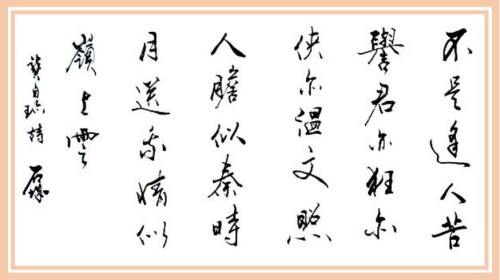 不是逢人苦
譽君亦狂亦
俠亦温文照
人膽似秦時
月送我情似
嶺上雲
龔自珍詩